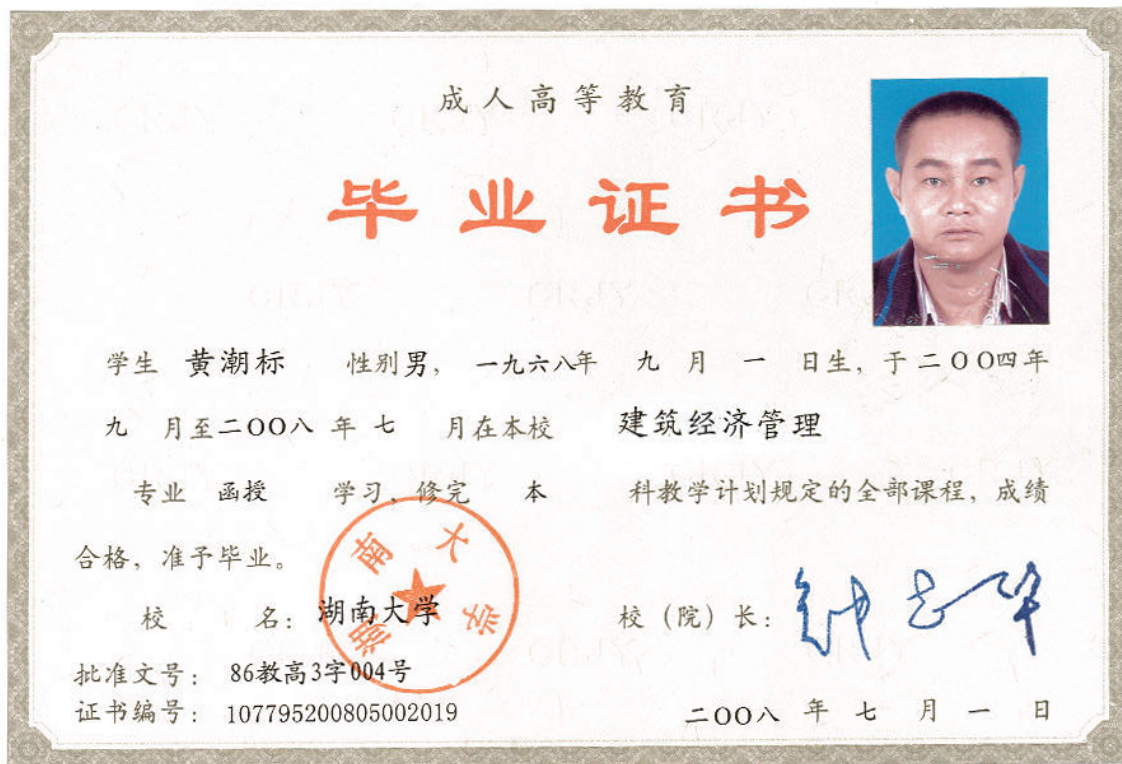 成人高等教育
毕业证书
学生 黄潮标 性别男，一九六八年 九 月 一 日生，于二〇〇四年
九 月至二〇〇八 年 七 月在本校 建筑经济管理
专业 函授 学习，修完 本 科教学计划规定的全部课程，成绩
合格，准予毕业。
校 名：湖南大学
湖南大学
校（院）长：钟志华
批准文号：86教高3字004号
证书编号：107795200805002019
二〇〇八 年 七 月 一 日